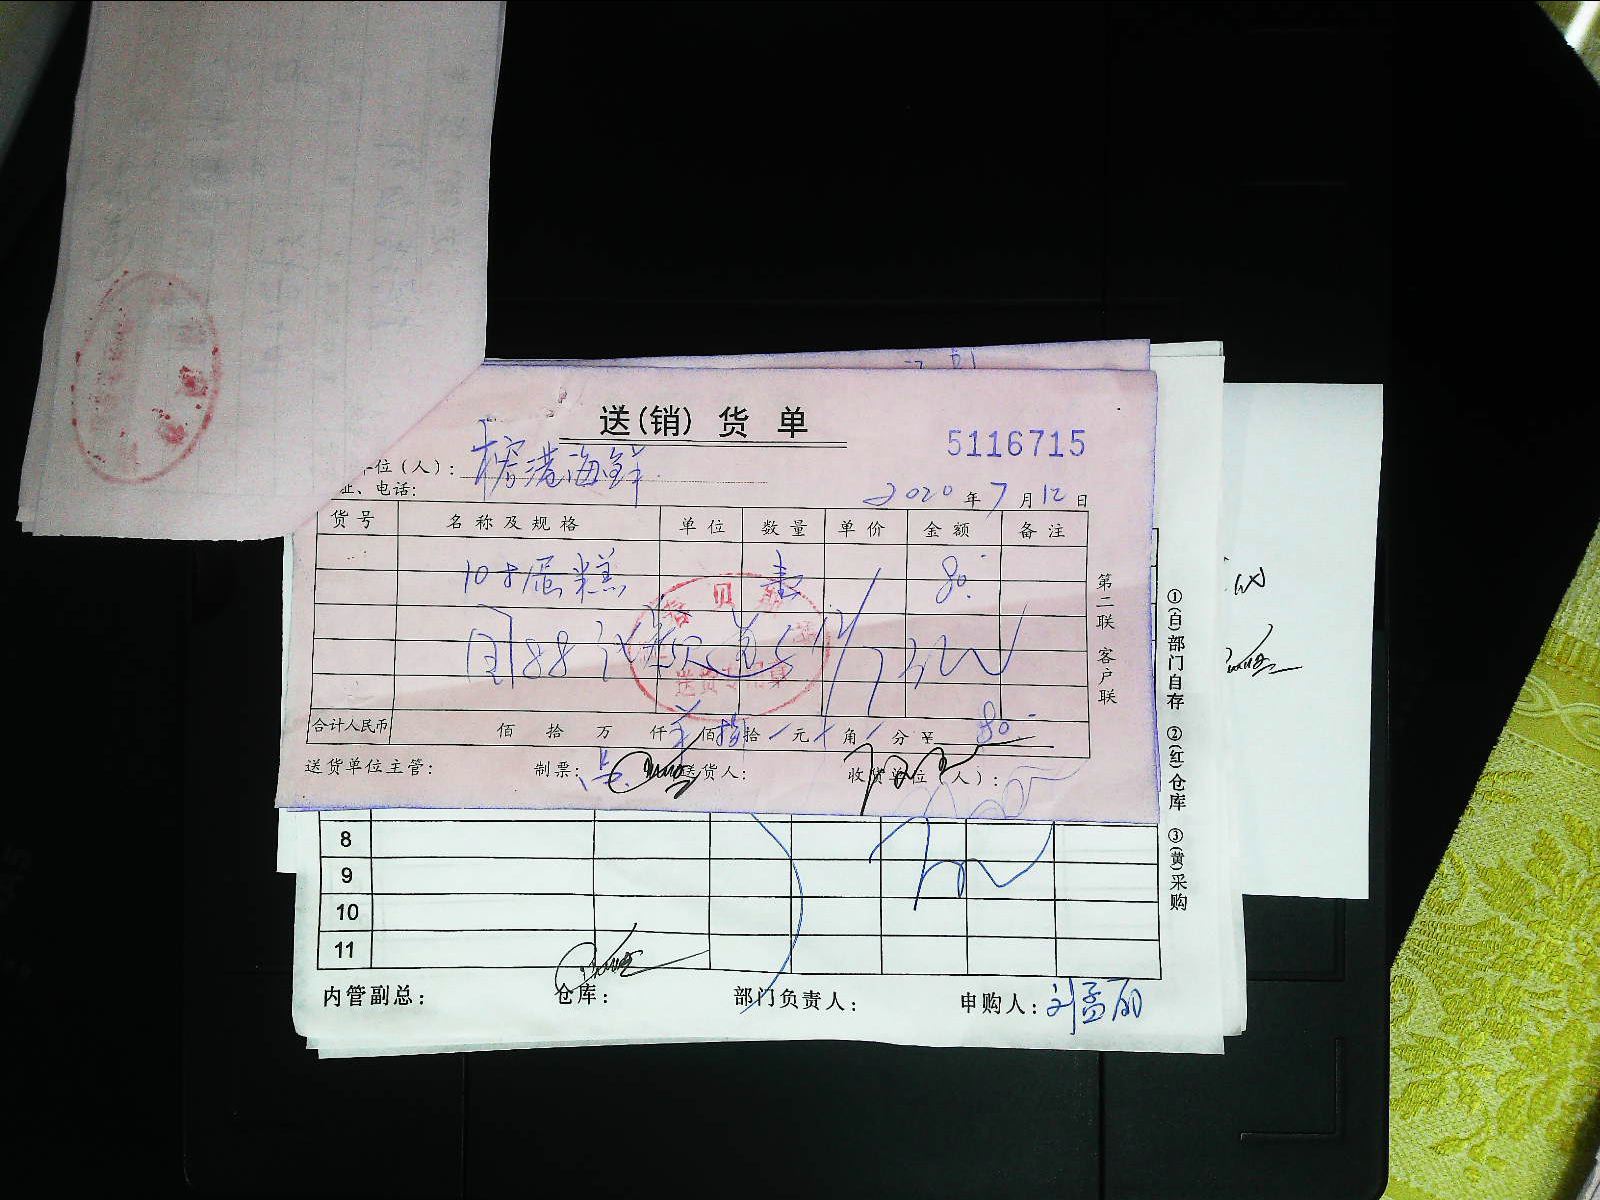 送(销)货单
5116715
位(人): 榕港海鲜
址、电话:
2020年7月12日
货号 名称及规格 单位 数量 单价 金额 备注
10寸蛋糕 80.-
合计人民币 佰 拾 万 仟 佰 捌拾 元 角 分 ¥ 80.-
送货单位主管: 制票: 送货人: 收货单位(人):
第二联 客户联
送货专用章
8
9
10
11
内管副总: 仓库: 部门负责人: 申购人: 刘孟丽
①(白)部门自存 ②(红)仓库 ③(黄)采购